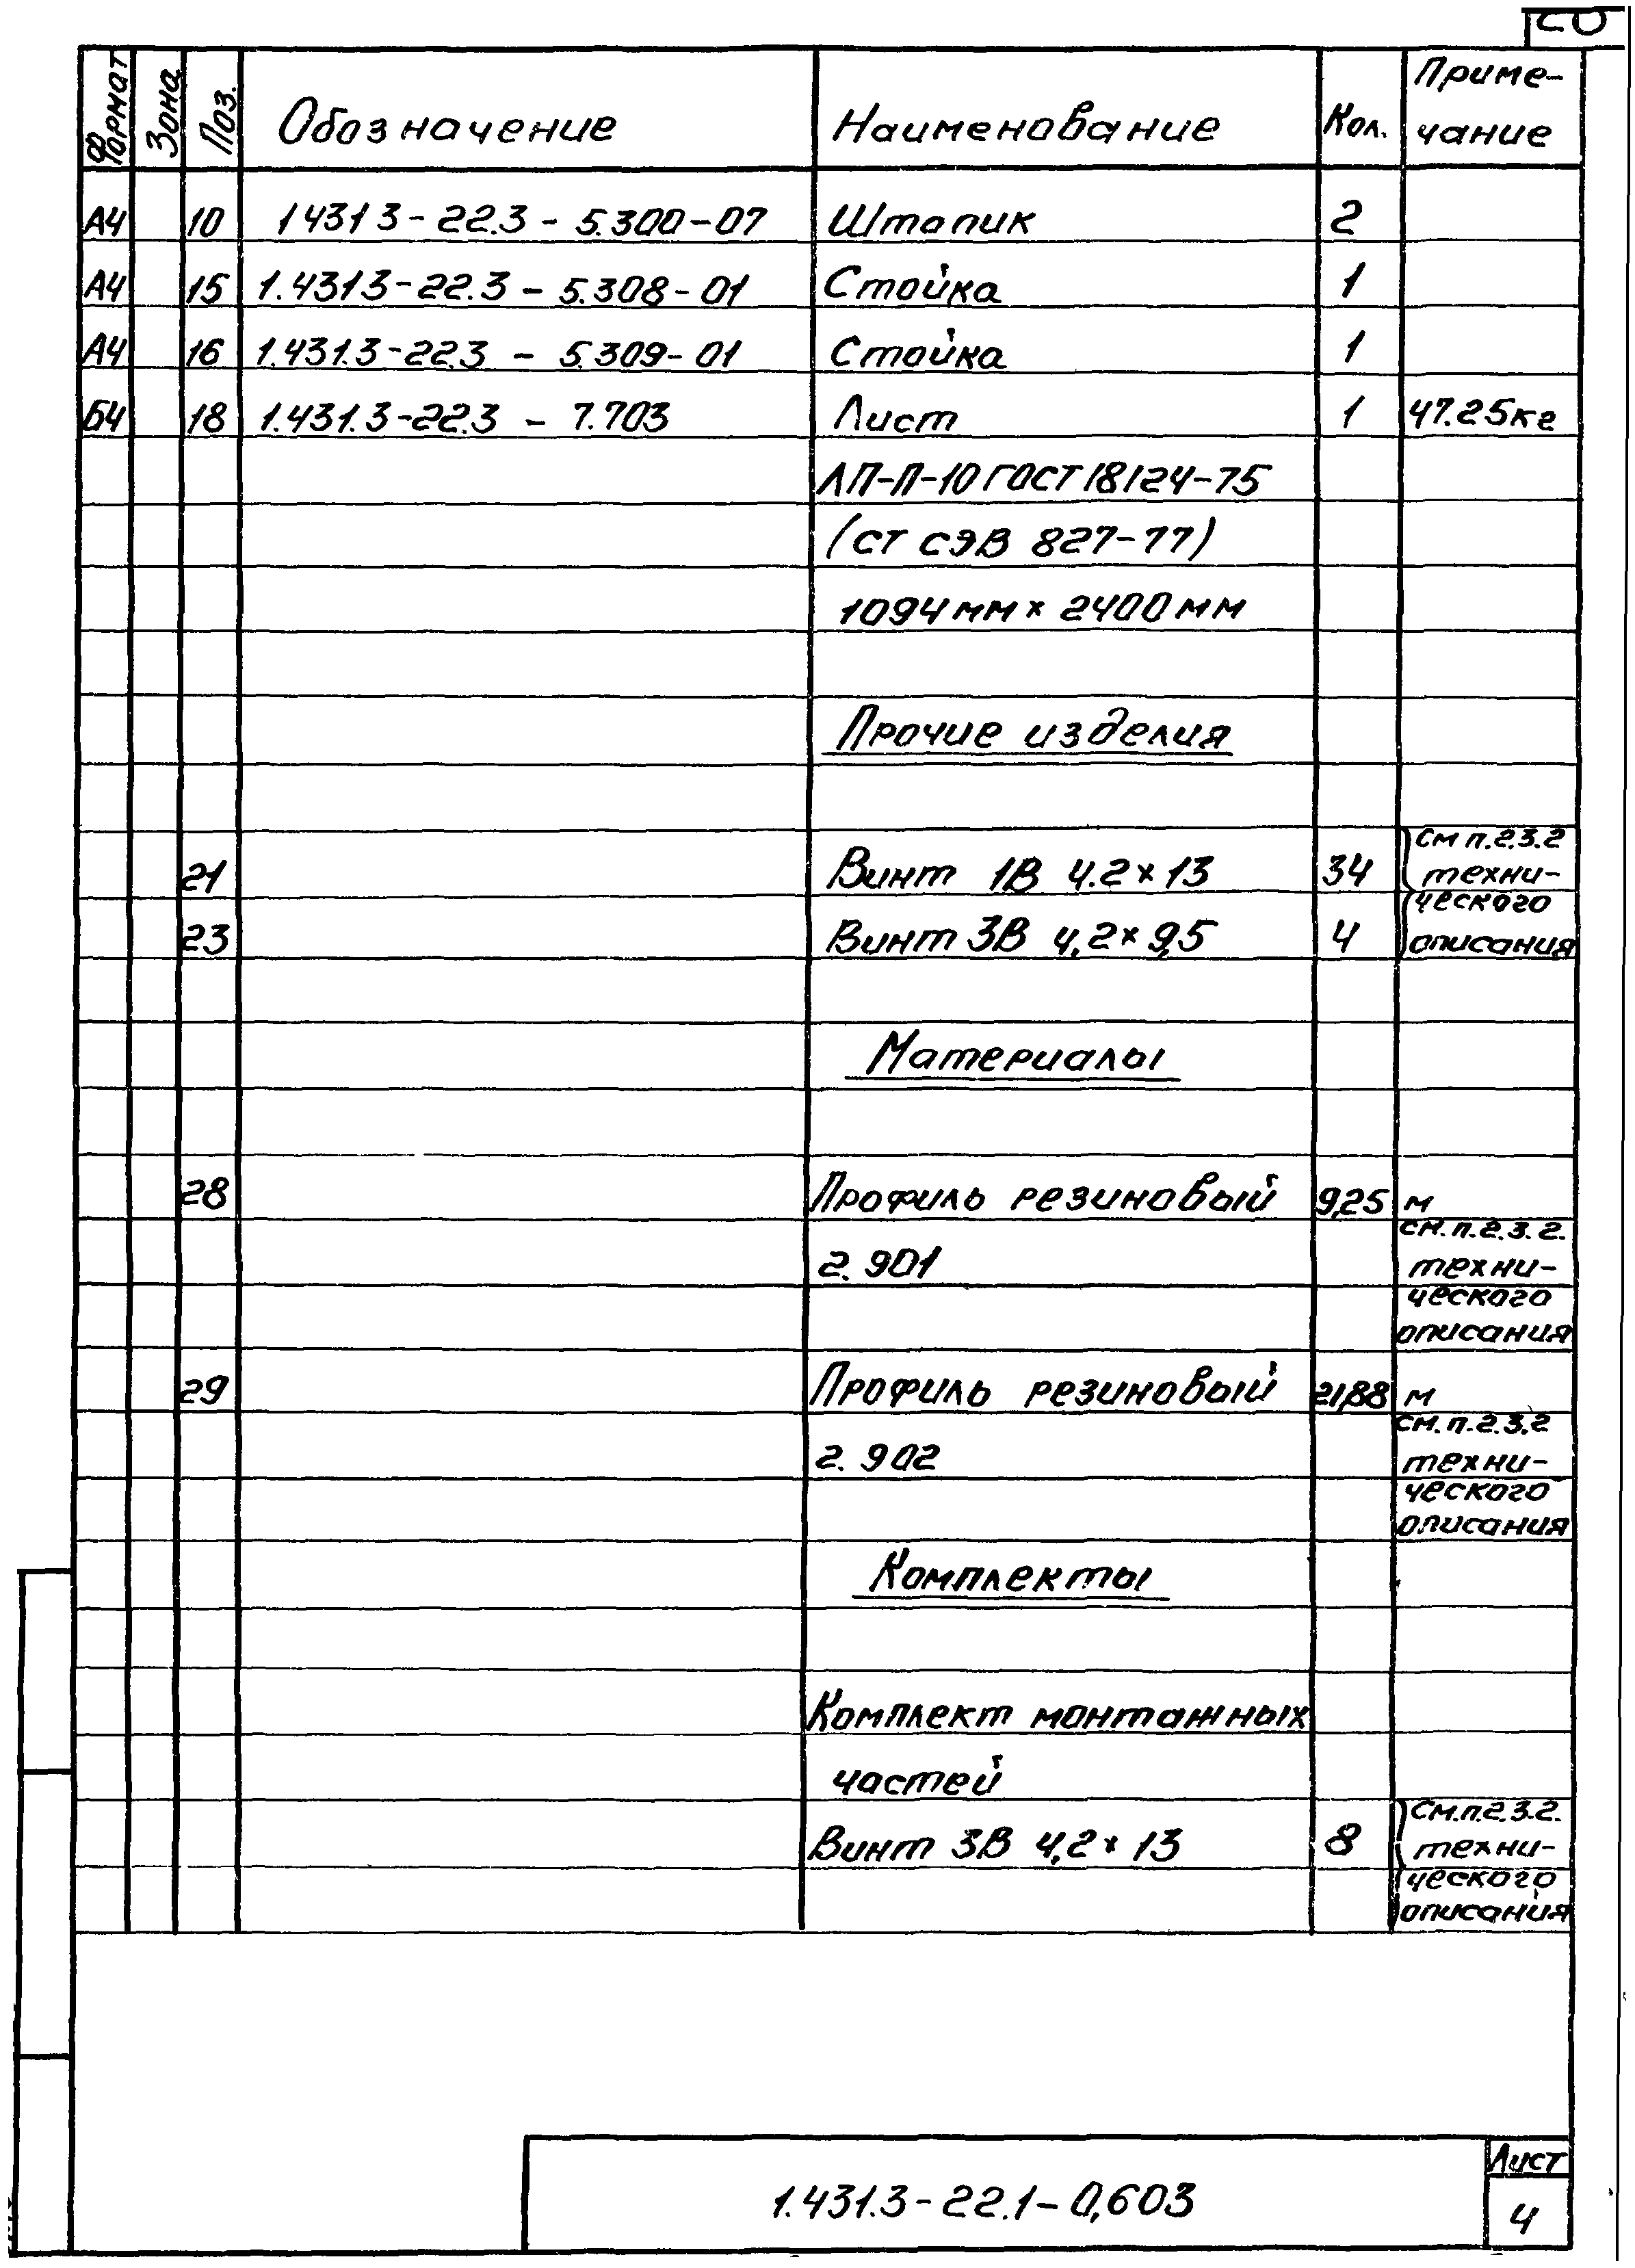 Формат Зона Поз. Обозначение Наименование Кол. Приме-
чание
А4 10 1431 3-22.3-5.300-07 Штапик 2
А4 15 1.431 3-22.3-5.308-01 Стойка 1
А4 16 1.431.3-22.3-5.309-01 Стойка 1
Б4 18 1.431.3-22.3-7.703 Лист 1 47.25кг
ЛП-П-10 ГОСТ 18124-75
(СТ СЭВ 827-77)
1094 мм × 2400 мм
Прочие изделия
См п.2.3.2
21 Винт 1В 4.2×13 34 техни-
ческого
23 Винт 3В 4,2×9,5 4 описания
Материалы
28 Профиль резиновый 9,25 м
см.п.2.3.2.
г. 901 техни-
ческого
описания
29 Профиль резиновый 21,88 м
см.п.2.3.2
г. 902 техни-
ческого
описания
Комплекты
Комплект монтажных
частей
См.п.2.3.2.
Винт 3В 4,2×13 8 техни-
ческого
описания
Лист
1.431.3-22.1-0,603
4